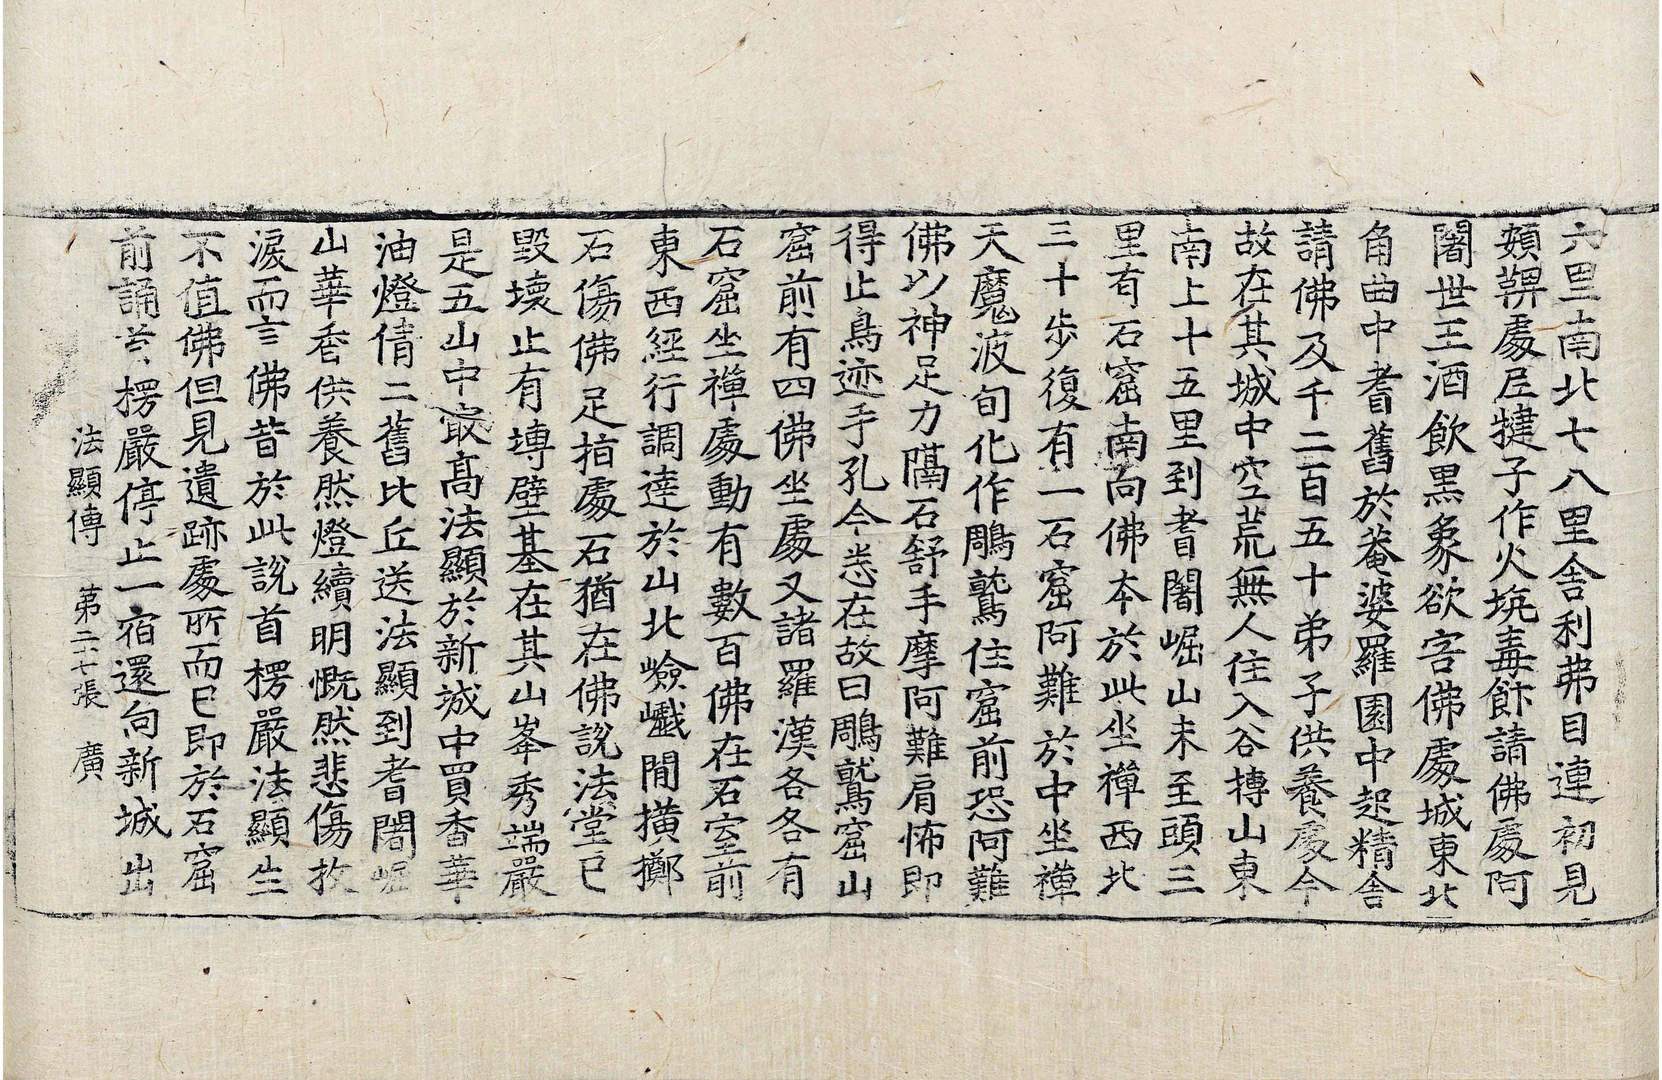 六里南北七八里舍利弗目連初見
頞鞞處尼犍子作火坑毒飰請佛處阿
闍世王酒飲黒象欲害佛處城東北
角曲中耆舊於菴婆羅園中起精舍
請佛及千二百五十弟子供養處今
故在其城中空荒無人住入谷摶山東
南上十五里到耆闍崛山未至頭三
里有石窟南向佛本於此坐禪西北
三十步復有一石窟阿難於中坐禪
天魔波旬化作鵰鷲住窟前恐阿難
佛以神足力隔石舒手摩阿難肩怖即
得止鳥迹手孔今悉在故曰鵰鷲窟山
窟前有四佛坐處又諸羅漢各各有
石窟坐禪處動有數百佛在石室前
東西經行調達於山北嶮巇間横擲
石傷佛足指處石猶在佛說法堂已
毀壞止有塼壁基在其山峯秀端嚴
是五山中㝡髙法顯於新城中買香華
油燈倩二舊比丘送法顯到耆闍崛
山華香供養然燈續明慨然悲傷抆
淚而言佛昔於此說首楞嚴法顯生
不值佛但見遺跡處所而已即於石窟
前誦首楞嚴停止一宿還向新城出
法顯傳 第二十七張 廣